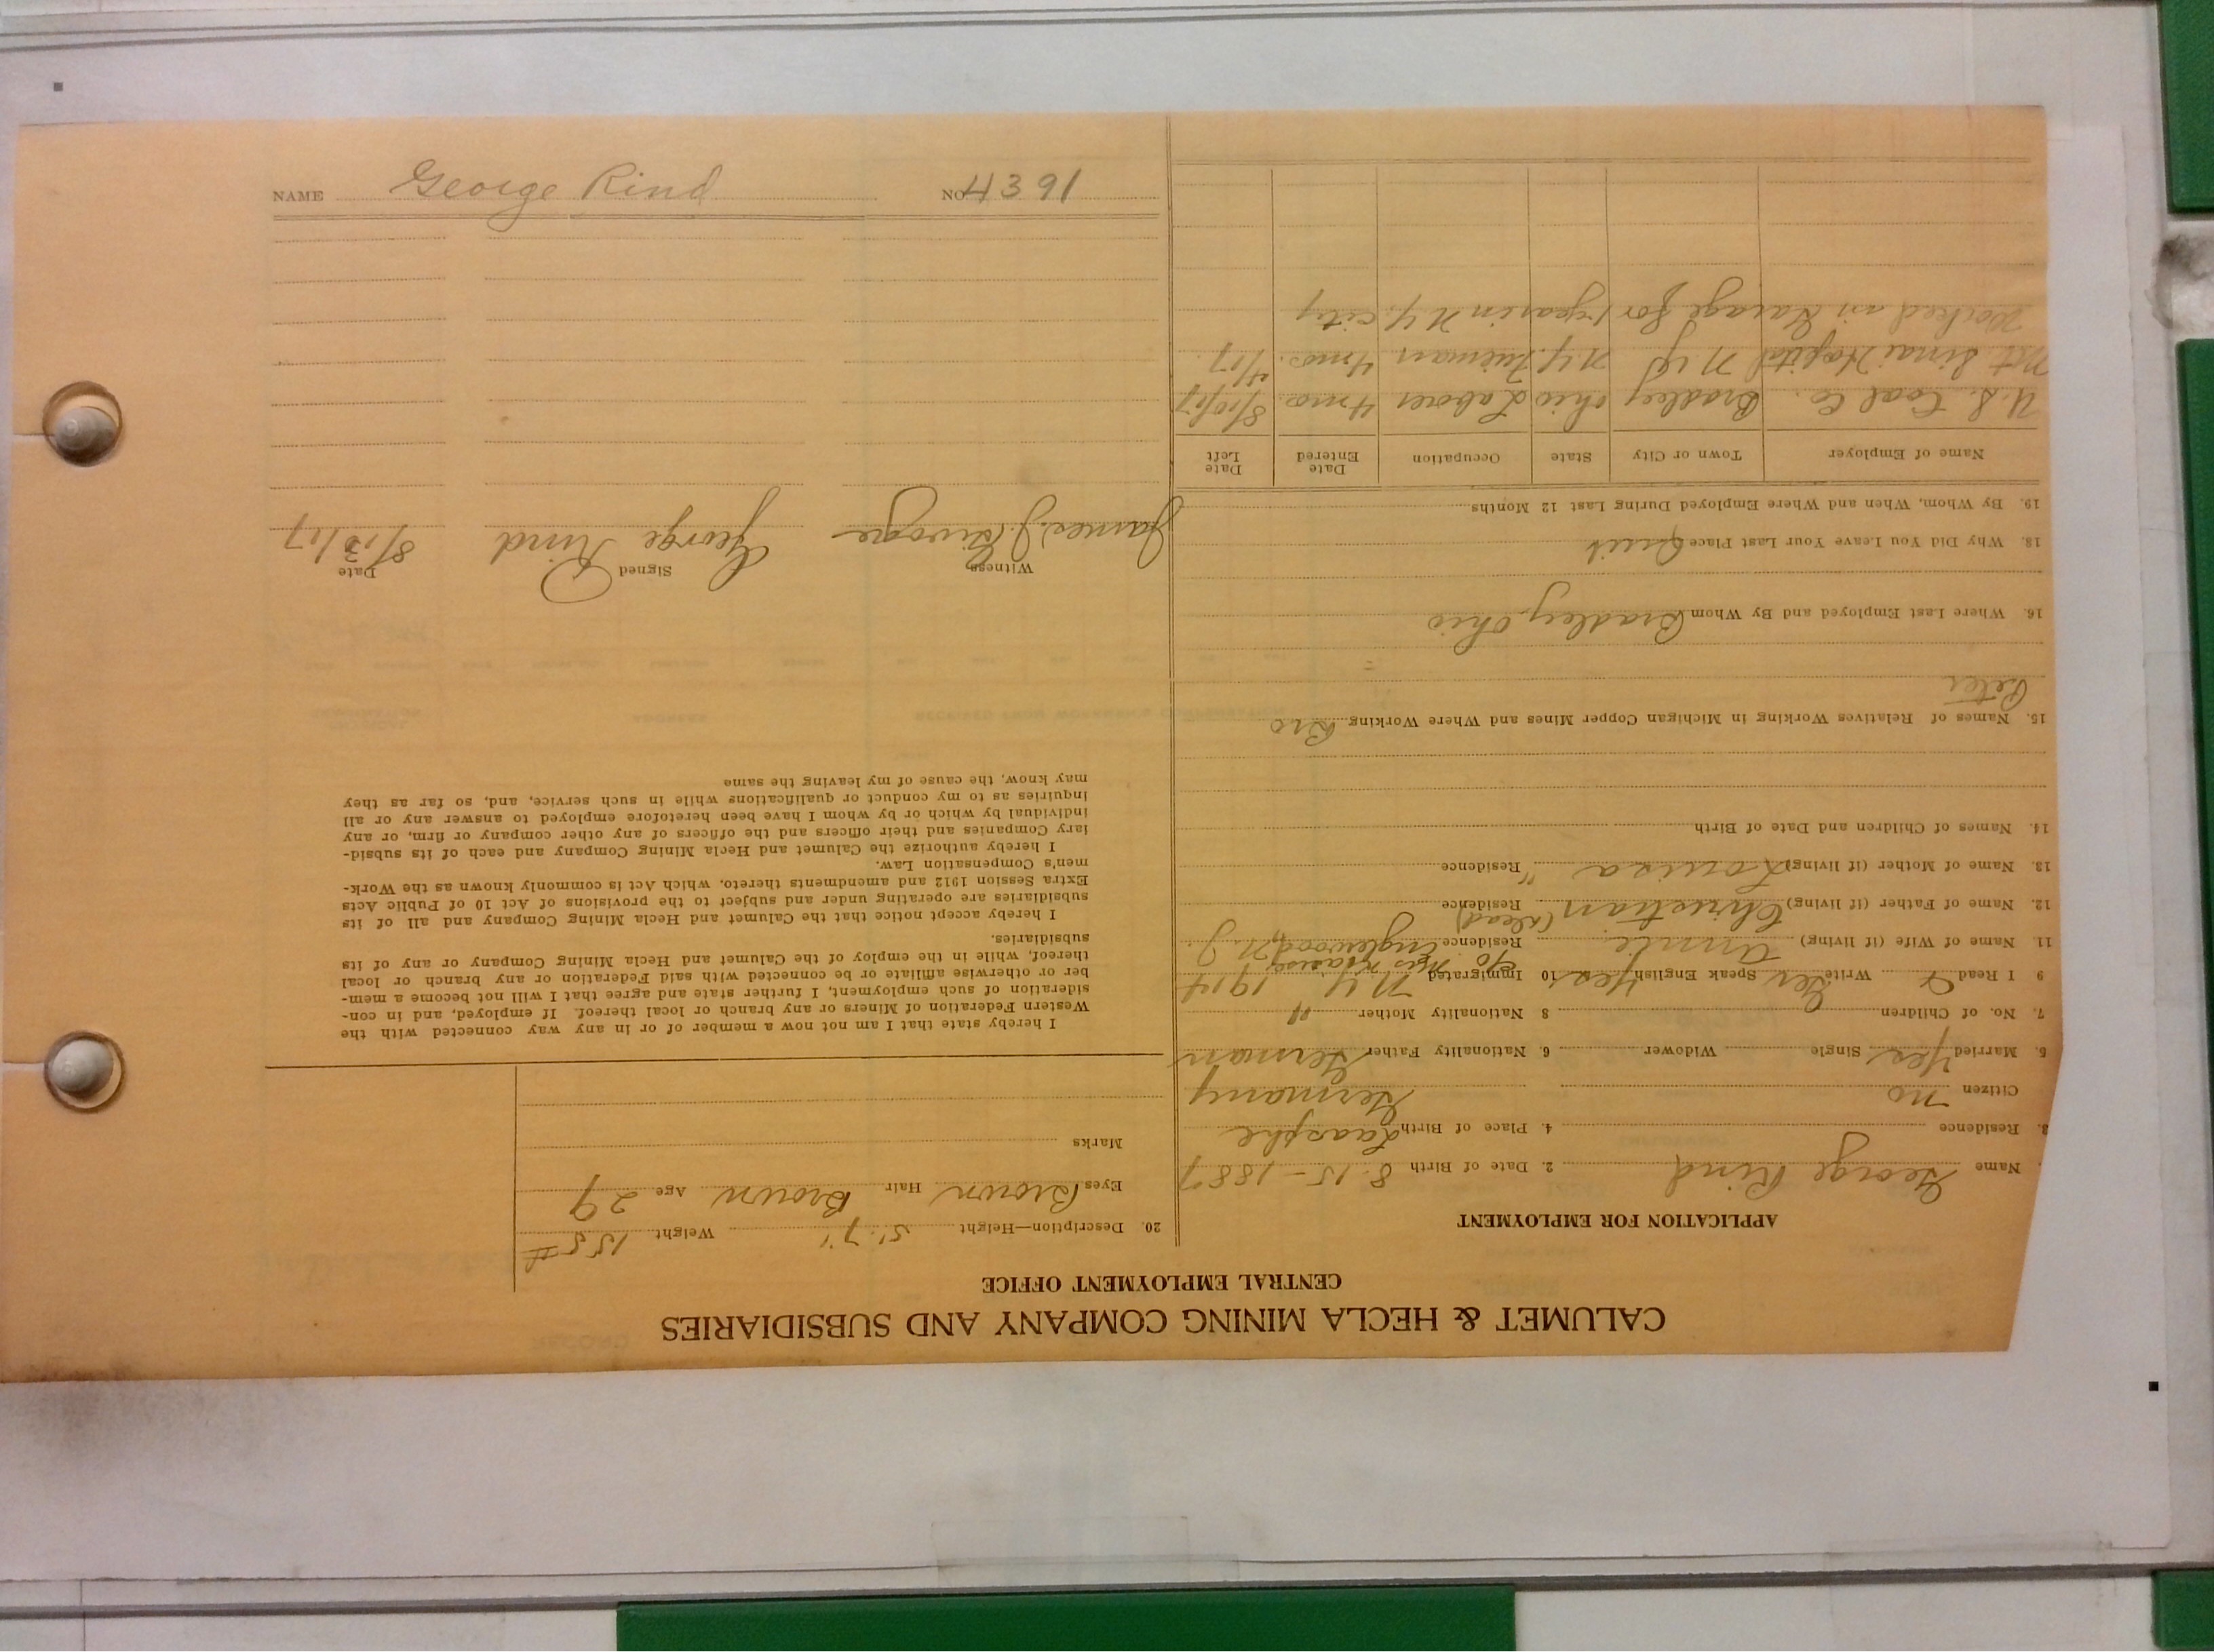 CALUMET & HECLA MINING COMPANY AND SUBSIDIARIES
CENTRAL EMPLOYMENT OFFICE
APPLICATION FOR EMPLOYMENT
Name George Rind 2. Date of Birth 8-15-1887
3. Residence 4. Place of Birth Laasphe
Citizen no Germany
5. Married Yes Single Widower 6. Nationality Father German
7. No. of Children 8 Nationality Mother "
9 I Read & Write Ger Speak English Yes 10 Immigrated N.Y 1914
℅ Mrs
11. Name of Wife (if living) Annie Residence Englewood, N.J.
12. Name of Father (if living) Christian (dead) Residence
13. Name of Mother (if living) Louisa Residence "
14. Names of Children and Date of Birth
15. Names of Relatives Working in Michigan Copper Mines and Where Working Bro
Peter
16. Where Last Employed and By Whom Bradley, Ohio
18. Why Did You Leave Your Last Place Quit
19. By Whom, When and Where Employed During Last 12 Months
Name of Employer Town or City State Occupation Date Entered Date Left
U.S. Coal Co. Bradley Ohio Laborer 4 mo. 8/10/17
Mt. Sinai Hospital N.Y. Fireman 4 mo. 4/17
Worked in Garage for 1 year in N.Y. City
20. Description—Height 5'.7" Weight 155#
Eyes Brown Hair Brown Age 29
Marks
I hereby state that I am not now a member of or in any way connected with the
Western Federation of Miners or any branch or local thereof. If employed, and in con-
sideration of such employment, I further state and agree that I will not become a mem-
ber or otherwise affiliate or be connected with said Federation or any branch or local
thereof, while in the employ of the Calumet and Hecla Mining Company or any of its
subsidiaries.
I hereby accept notice that the Calumet and Hecla Mining Company and all of its
subsidiaries are operating under and subject to the provisions of Act 10 of Public Acts
Extra Session 1912 and amendments thereto, which Act is commonly known as the Work-
men's Compensation Law.
I hereby authorize the Calumet and Hecla Mining Company and each of its subsid-
iary Companies and their officers and the officers of any other company or firm, or any
individual by which or by whom I have been heretofore employed to answer any or all
inquiries as to my conduct or qualifications while in such service, and, so far as they
may know, the cause of my leaving the same
Witness Signed Date
James J. George Rind 8/13/17
NAME George Rind NO 4391